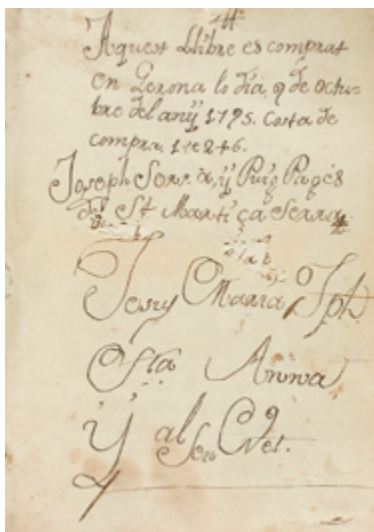 Aquest Llibre es comprat
en Gerona lo dia 9 de Octu-
bre del any 1795. Costa de
compra
Joseph Serra, y Puig Pagès
de St Martí ça Serra
Jesus Maria Jph.
Sta Anna
Y al Seu Net.